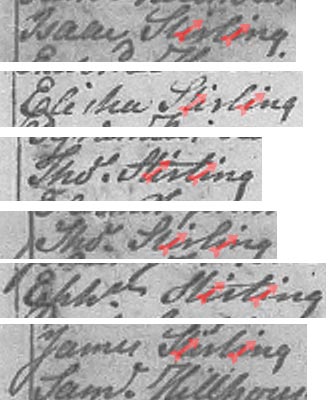 Isaac Stirling
Elisha Stirling
Thos. Stirling
Thos. Stirling
Ephm. Stirling
James Stirling
Saml. Millhous